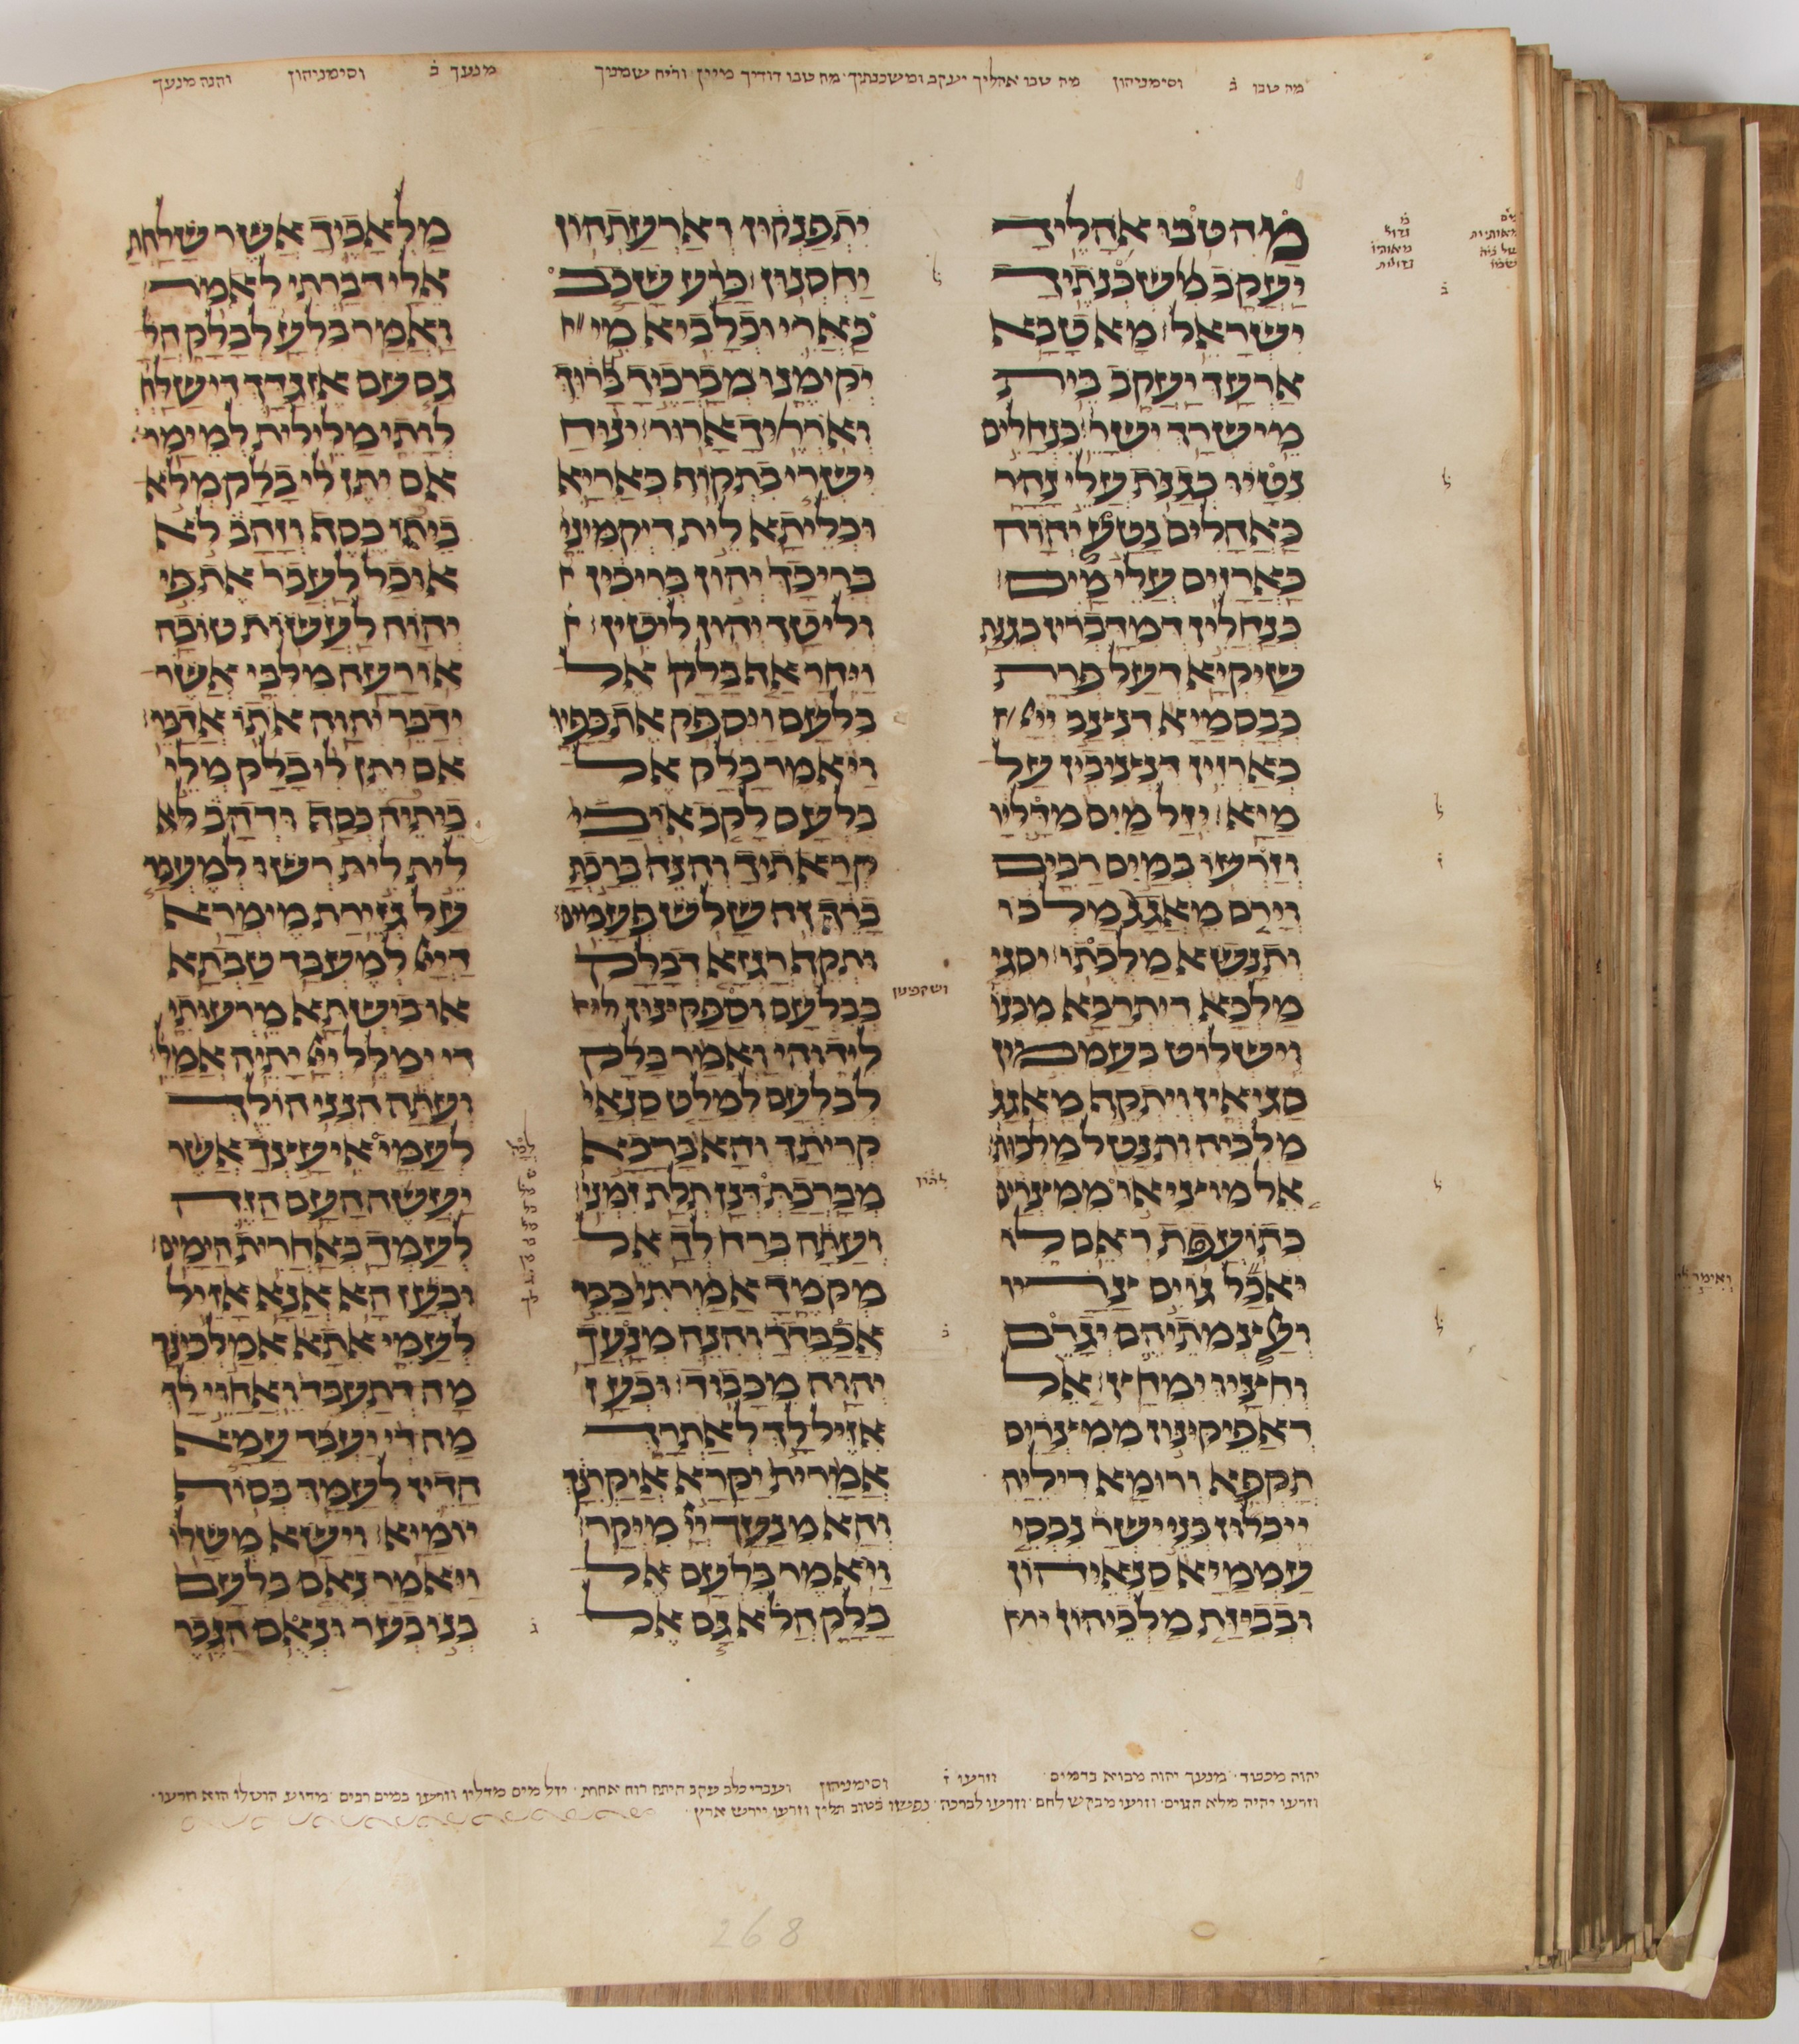 מה טבו ב וסימניהון מה טבו אהליך יעקב ומשכנתיך מה טבו דודיך מיין וריח שמניך מנעך ב וסימניהון והנה מנעך
מה טבו אהליך
יעקב משכנתיך
ישראל מא טבא
ארעך יעקב בית
מישרך ישר כנחלים
נטיו כגנת עלי נהר
כאהלים נטע יהוה
כארזים עלי מים
כנחלין דמדברין כגנת
שיקיא דעל פרת
כבסמיא דנציב ייי
כארזין דנציבין על
מיא יזל מים מדליו
וזרעו במים רבים
וירם מאגג מלכו
ותנשא מלכתו יסגי
מלכא דיתרבא מבנו
וישלוט בעממין
סגיאין ויתקף מאגג
מלכיה ותנטל מלכות
אל מוציאו ממצרים
כתועפת ראם לו
יאכל גוים צריו
ועצמתיהם יגרם
וחציו ימחץ אל
דאפיקינון ממצרים
תקפא ורומא דיליה
ייכלון בני ישר נכסי
עממיא סנאיהון
ובבזת מלכיהון
יתפנקון וארעתהון
יחסנון כרע שכב
כארי וכלביא מי
יקימנו מברכיך ברוך
וארריך ארור ינוח
ישרי בתקוף כאריא
וכליתא לית דיקימינ
בריכך יהון בריכין
וליטך יהון ליטין
ויחר אף בלק אל
בלעם ויספק את כפיו
ויאמר בלק אל
בלעם לקב איבי
קראתיך והנה ברכת
ברך זה שלש פעמים
ותקף רגזא דבלק
בבלעם וספקינון
לידוהי ואמר בלק
לבלעם למלט סנאי
קריתך והא ברכא
מברכת דנן תלת זמני
ועתה ברח לך אל
מקמך אמרתי כבד
אכבדך והנה מנעך
יהוה מכבוד וכען
אזיל לך לאתרך
אמרית יקרא איקרנך
והא מנעך ייי מיקר
ויאמר בלעם אל
בלק הלא גם אל
מלאכיך אשר שלחת
אלי דברתי לאמר
ואמר בלעם לבלק הל
גם עם אזגדך דישלחת
לותי מלילית למימר
אם יתן לי בלק מלא
ביתו כסף וזהב לא
אוכל לעבר את פי
יהוה לעשות טובה
או רעה מלבי אשר
ידבר יהוה אתו אדבר
אם יתן לי בלק מלי
ביתיה כסף ודהב לא
לית לית רשו למעבר
על גזירת מימרא
דייי למעבד טבתא
או בישתא מרעותי
די ימליל ייי יתיה אמלל
ועתה הנני הולך
לעמי איעצך אשר
יעשה העם הזה
לעמך באחרית הימים
וכען הא אנא אזיל
לעמי אתא אמלכנך
מה דתעביד ואחוי לך
מה די יעביד עמא
הדין לעמך בסוף
יומיא וישא משלו
ויאמר נאם בלעם
בנו בער ונאם הגבר
יהוה מכבוד מנעך יהוה מבוא בדמים וזרעו ז וסימניהון ועבדי כלב עקב היתה רוח אחרת יזל מים מדליו וזרעו במים רבים מדוע הוטלו הוא וזרעו
וזרעו יהיה מלא הגוים וזרעו מבקש לחם וזרעו לברכה נפשו בטוב תלין וזרעו יירש ארץ
268